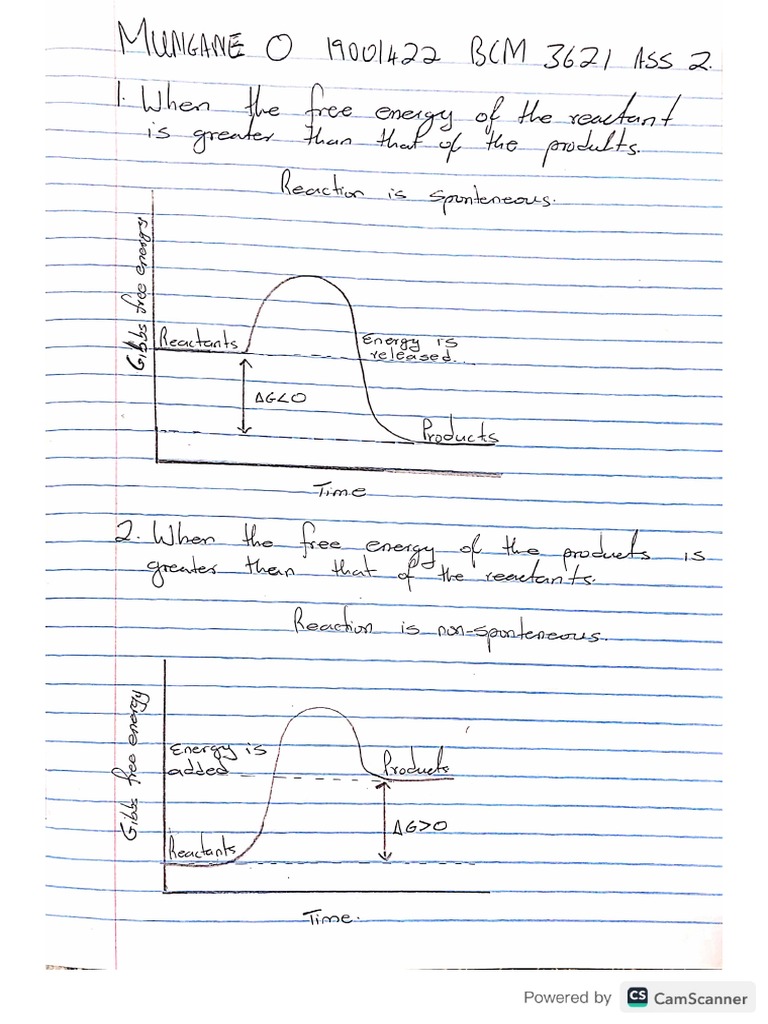 MUNGANE O 19001422 BCM 3621 ASS 2.
1. When the free energy of the reactant
is greater than that of the products.
Reaction is sponteneous.
Gibbs free energy
Reactants
Energy is
released.
ΔG<0
Products
Time
2. When the free energy of the products is
greater than that of the reactants.
Reaction is non-sponteneous.
Gibbs free energy
Energy is
added
Products
ΔG>0
Reactants
Time.
Powered by CS CamScanner